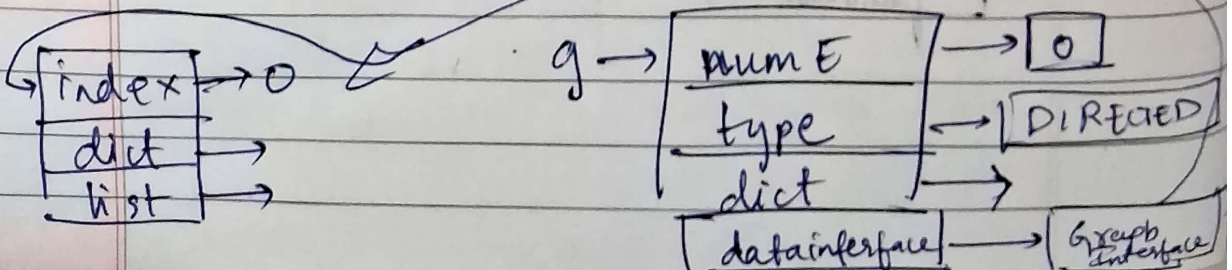 index → 0
dict →
list →
g → numE → 0
type → DIRECTED
dict →
datainferface → Graph Interface